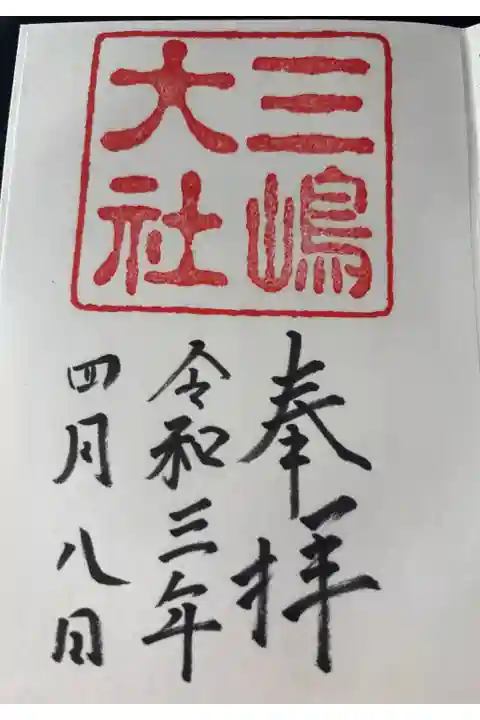 三嶋
大社
奉拝
令和三年
四月八日